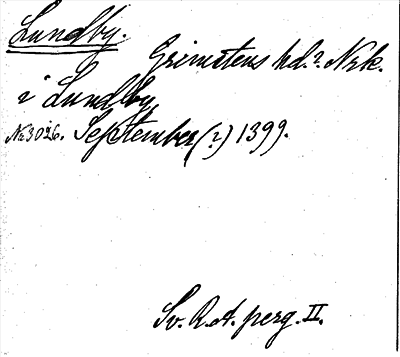 Lundby.
Grimstens hd.? Nrk.
i Lundby
No 3026. September (?) 1399.
Sv. R.A. perg. II.